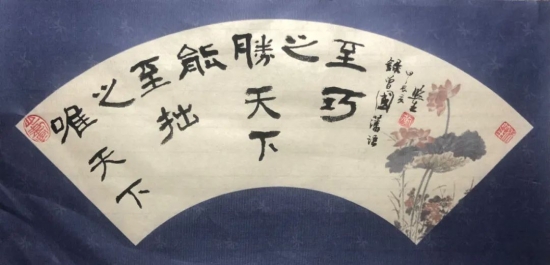 唯天下
之
至拙
能
勝天下
之
至巧
錄曾國藩語
甲辰夏